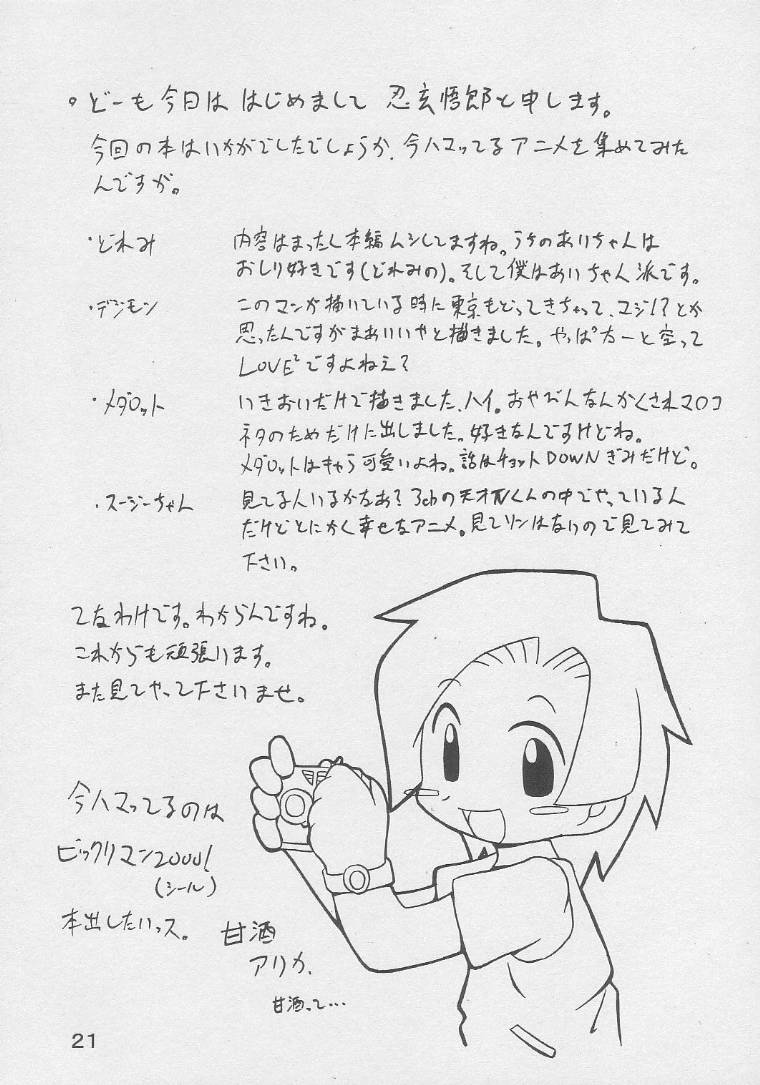 。どーも今日は はじめまして 忍玄悟郎と申します。
今回の本はいかがでしたでしょうか、今ハマってるアニメを集めてみた
んですが。
・どれみ 内容はまったく本編ムシしてますね。うちのあいちゃんは
おしり好きです(どれみの)。そして僕はあいちゃん派です。
・デジモン このマンガ描いている時に東京もどってきちゃって、マジ!?とか
思ったんですがまあいいやと描きました。やっぱ太一と空って
LOVE²ですよねえ?
・メダロット いきおいだけで描きました、ハイ。おやびんなんかくされマロコ
ネタのためだけに出しました。好きなんですけどね。
メダロットはキャラ可愛いよね。話はチョットDOWNぎみだけど。
・スージーちゃん 見てる人いるかなあ? 3chの天才TVくんの中でやっているん
だけどとにかく幸せなアニメ。見てソンはないので見てみて
下さい。
てなわけです。わからんですね。
これからも頑張います。
また見てやって下さいませ。
今ハマってるのは
ビックリマン2000!
(シール)
本出したいっス。
甘酒
アリカ、
甘酒って…
21